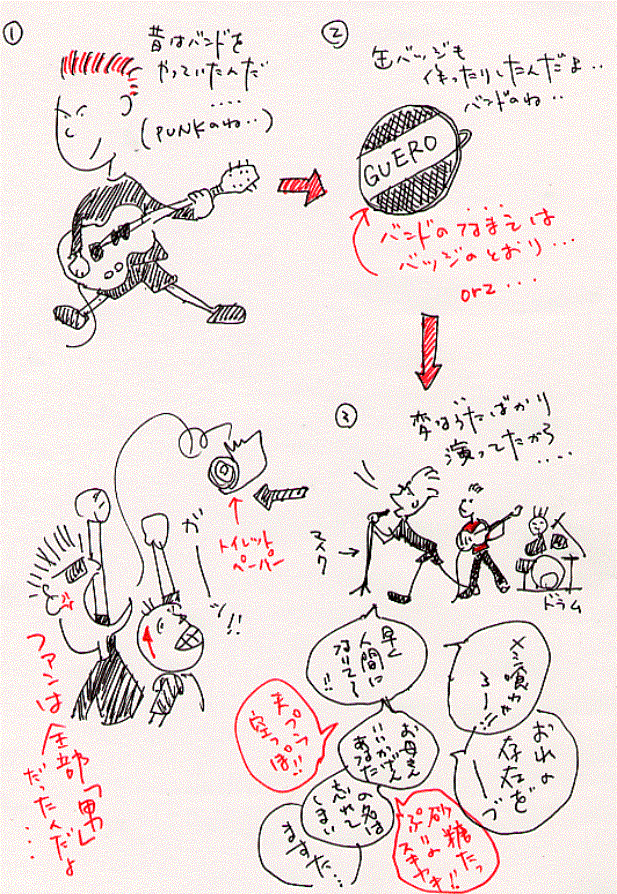 ①
昔はバンドを
やっていたんだ
....
(PUNKのね..)
②
缶バッジも
作ったりしたんだよ..
バンドのね..
GUERO
....
バンドのなまえは
バッジのとおり...
orz...
③
変なうたばかり
演ってたから
....
マイク→
ドラム
早く
人間に
なりて〜
!!
メシ喰わ
せろー!!
おれの
存在を
ーーづ
天プラ
空っぽ!!
お母さん
いいかげん
あなた
の名は
忘れて
しまい
ますた...
砂糖たっ
ぷりの
スキヤキ!!
トイレット
ペーパー
がーッ!!
ファンは
全部「男」
だったんだよ
...